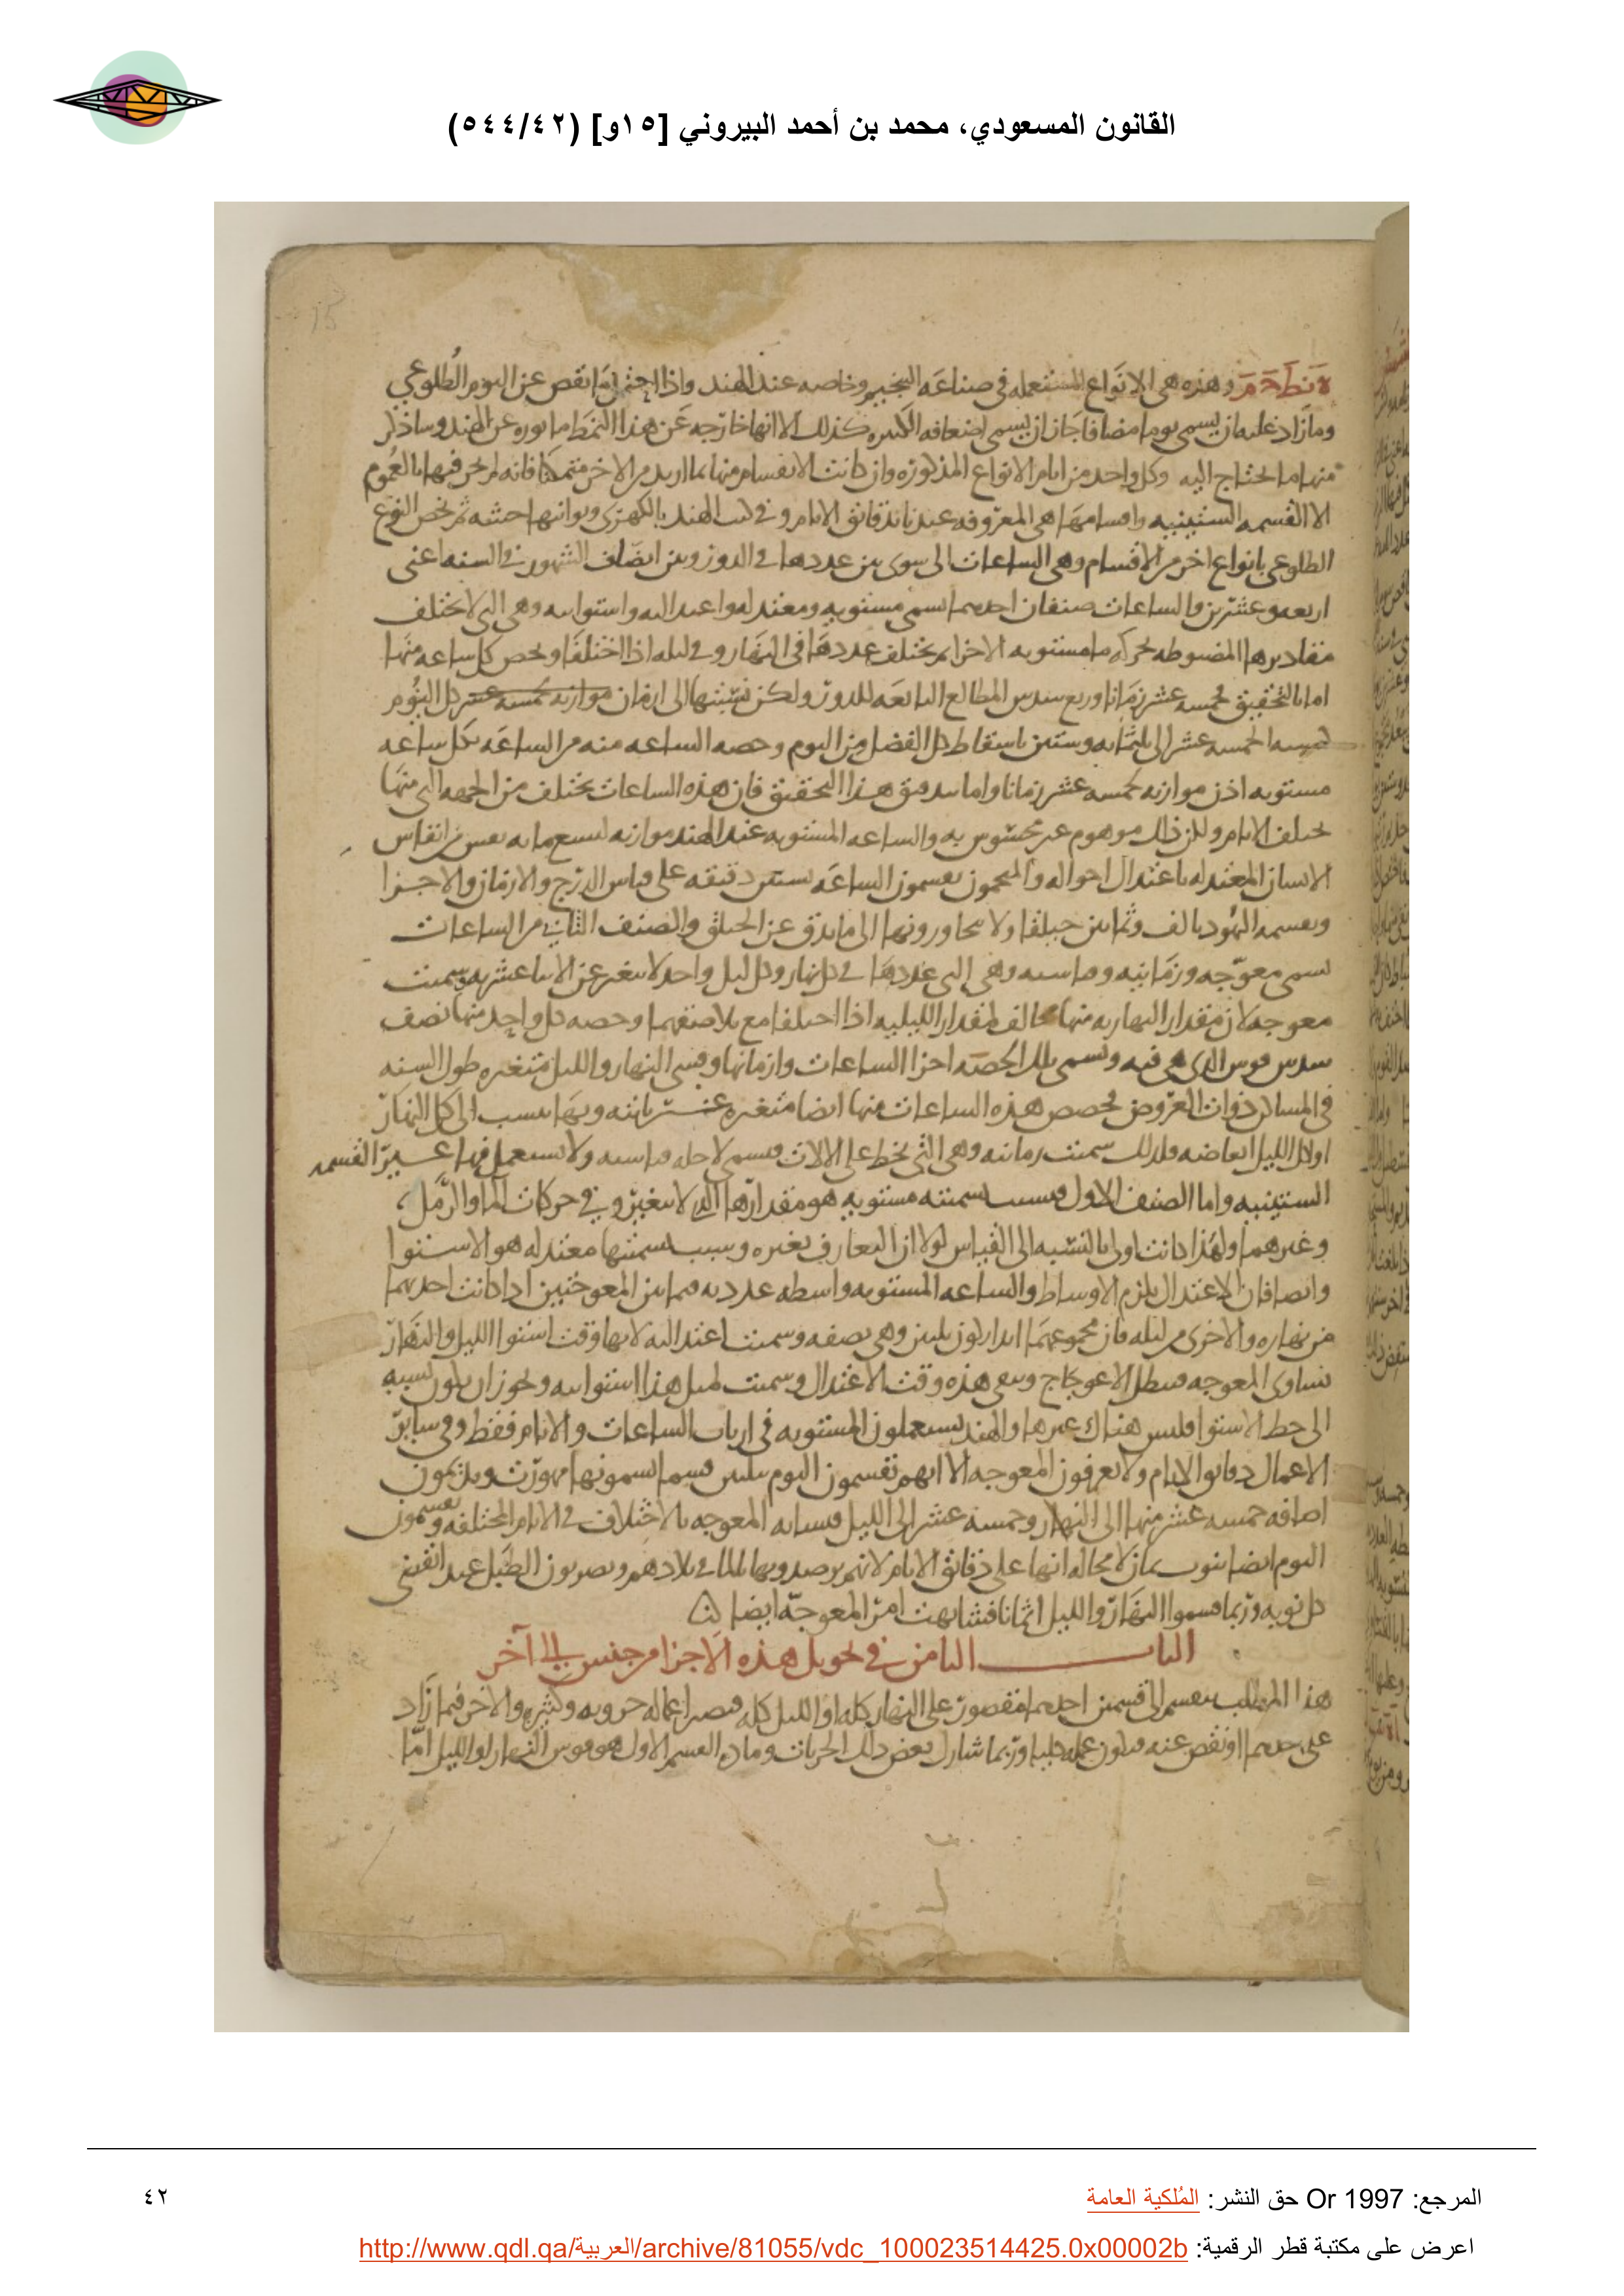 القانون المسعودي، محمد بن أحمد البيروني [١٥و] (٥٤٤/٤٢)
15
وهذه هي الانواع المستعمله في صناعه التنجيم وخاصه عند الهند واذا نقص عن اليوم الطلوعي
وما زاد عليه ان يسمى يوما مضافا جاز ان يسمى اضعافه الكثيره كذلك الا انها خارجه عن هذا النمط ماثوره عن الهند وساذكر
منها ما احتاج اليه وكل واحد من ايام الانواع المذكوره وان كانت الانقسام منها بما اريد من الاخر متمكنا فانه لم يجر فيها بالعموم
الا القسمه الستينيه واقسامها هي المعروفه عندنا بدقائق الايام وفي كتب الهند بالكهرى وثوانيها جشه ثم يخص النوع
الطلوعي بانواع اخر من الاقسام وهي الساعات التي سوى بين عددها في الدور وبين انصاف الشهور في السنه اعني
اربعه وعشرين والساعات صنفان احدهما تسمى مستويه ومعتدله واعتداليه واستوائيه وهي التي لا تختلف
مقاديرها المضبوطه بحركه ما مستويه الاجزا بل يختلف عددها في النهار وفي ليله اذا اختلفا ويخص كل ساعه منها
اما بالتحقيق خمسه عشر زمانا وربع سدس المطالع التابعه للدور ولكن نسبتها الى ازمان كل اليوم
خمسه الخمسه عشر الى ثلثمايه وستين باسقاط كل الفضل من اليوم وحصه الساعه منه من الساعه فكل ساعه
مستويه اذن موازيه لخمسه عشر زمانا واما بتدقيق هذا التحقيق فان هذه الساعات تختلف من الجهه التي منها
تختلف الايام ولكن ذلك موهوم غير محسوس به والساعه المستويه عند الهند موازيه لتسع مايه نفس من انفاس
الانسان المعتدله باعتدال احواله والمنجمون يقسمون الساعه بستين دقيقه على قياس الدرج والازمان والاجزا
ويقسمه اليهود بالف وثمانين حيلقا ولا يتجاورونها الى ما يدق عن الحيلق والصنف الثاني من الساعات
تسمى معوجه وزمانيه وقياسيه وهي التي عددها في كل نهار وكل ليل واحد لا يتغير عن الاثنا عشريه وسميت
معوجه لان مقدار النهاريه منها مخالف لمقدار الليليه اذا اختلفا مع تلاصقهما وحصه كل واحد منهما نصف
سدس قوس الذي هي فيه وتسمى تلك الحصه اجزا الساعات وازمانها وقسي النهار والليل متغيره طول السنه
في المساكن ذوات العروض فحصص هذه الساعات منها ايضا متغيره غير ثابته وبها ينسب الى كل النهار
او كل الليل ابعاضه ولذلك سميت زمانيه وهي التي تخط على الالات فتسمى لاجله قياسيه ولا تستعمل فيها غير القسمه
الستينيه واما الصنف الاول فسبب تسميته مستويه هو مقدارها الذي لا يتغير وفي حركات الما والرمل
وغيرهما ولهذا كانت اولى بالنسبه الى القياس لولا ان التعارف بغيره وسبب تسميتها معتدله هو الاستوا
وايضا فان الاعتدال يلزم الاوساط والساعه المستويه واسطه عدديه فيما بين المعوجتين اذا كانت احديهما
من نهاره والاخرى من ليله فان مجموعهما ابدا يكون ثلثين وهي نصفه وسميت اعتداليه لانها وقت استوا الليل والنهار
تساوي المعوجه فيبطل الاعوجاج وتبقى هذه وقت الاعتدال وسميت لمثل هذا استوائيه ويجوز ان يكون نسبه
الى خط الاستوا فليس هناك غيرها والهند يستعملون المستويه في ارباب الساعات والايام فقط وفي سائر
الاعمال دقائق الايام ولا يعرفون المعوجه الا انهم يقسمون اليوم بثلثين قسما يسمونها مهورت ويلزمون
اضافه خمسه عشر منها الى النهار وخمسه عشر الى الليل فتشابه المعوجه بالاختلاف في الايام المختلفه ويقسمون
اليوم ايضا بنوب ثمان لا محاله انها على دقائق الايام لانهم يرصدونها بالما في بلادهم ويضربون الطبل عند انقضى
كل نوبه وربما قسموا النهار والليل اثمانا فتشابهت امر المعوجه ايضا
الباب الثامن في تحويل هذه الاجزا من جنس الى آخر
هذا المطلب ينقسم الى قسمين احدهما مقصور على النهار كله او الليل كله فتصير اعماله جزويه وكثيره والاخر فيما زاد
على احدهما او نقص عنه فيكون عمله كليا وربما شارك بعض ذلك الجزيات وما في القسم الاول هو قوس النهار او الليل اما
المرجع: Or 1997 حق النشر: المُلكية العامة
٤٢
اعرض على مكتبة قطر الرقمية: http://www.qdl.qa/العربية/archive/81055/vdc_100023514425.0x00002b